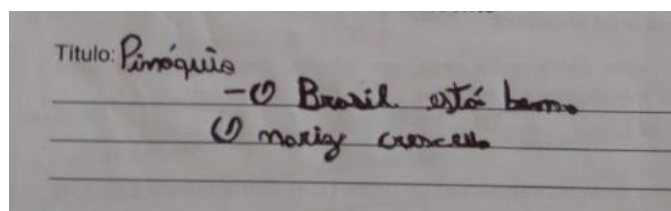 Título: Pinóquio
- O Brasil está bem.
O nariz cresceu.